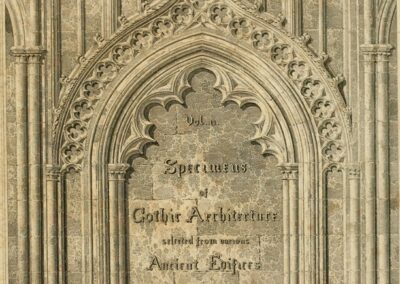 Vol. II.
Specimens
of
Gothic Architecture
selected from various
Ancient Edifices